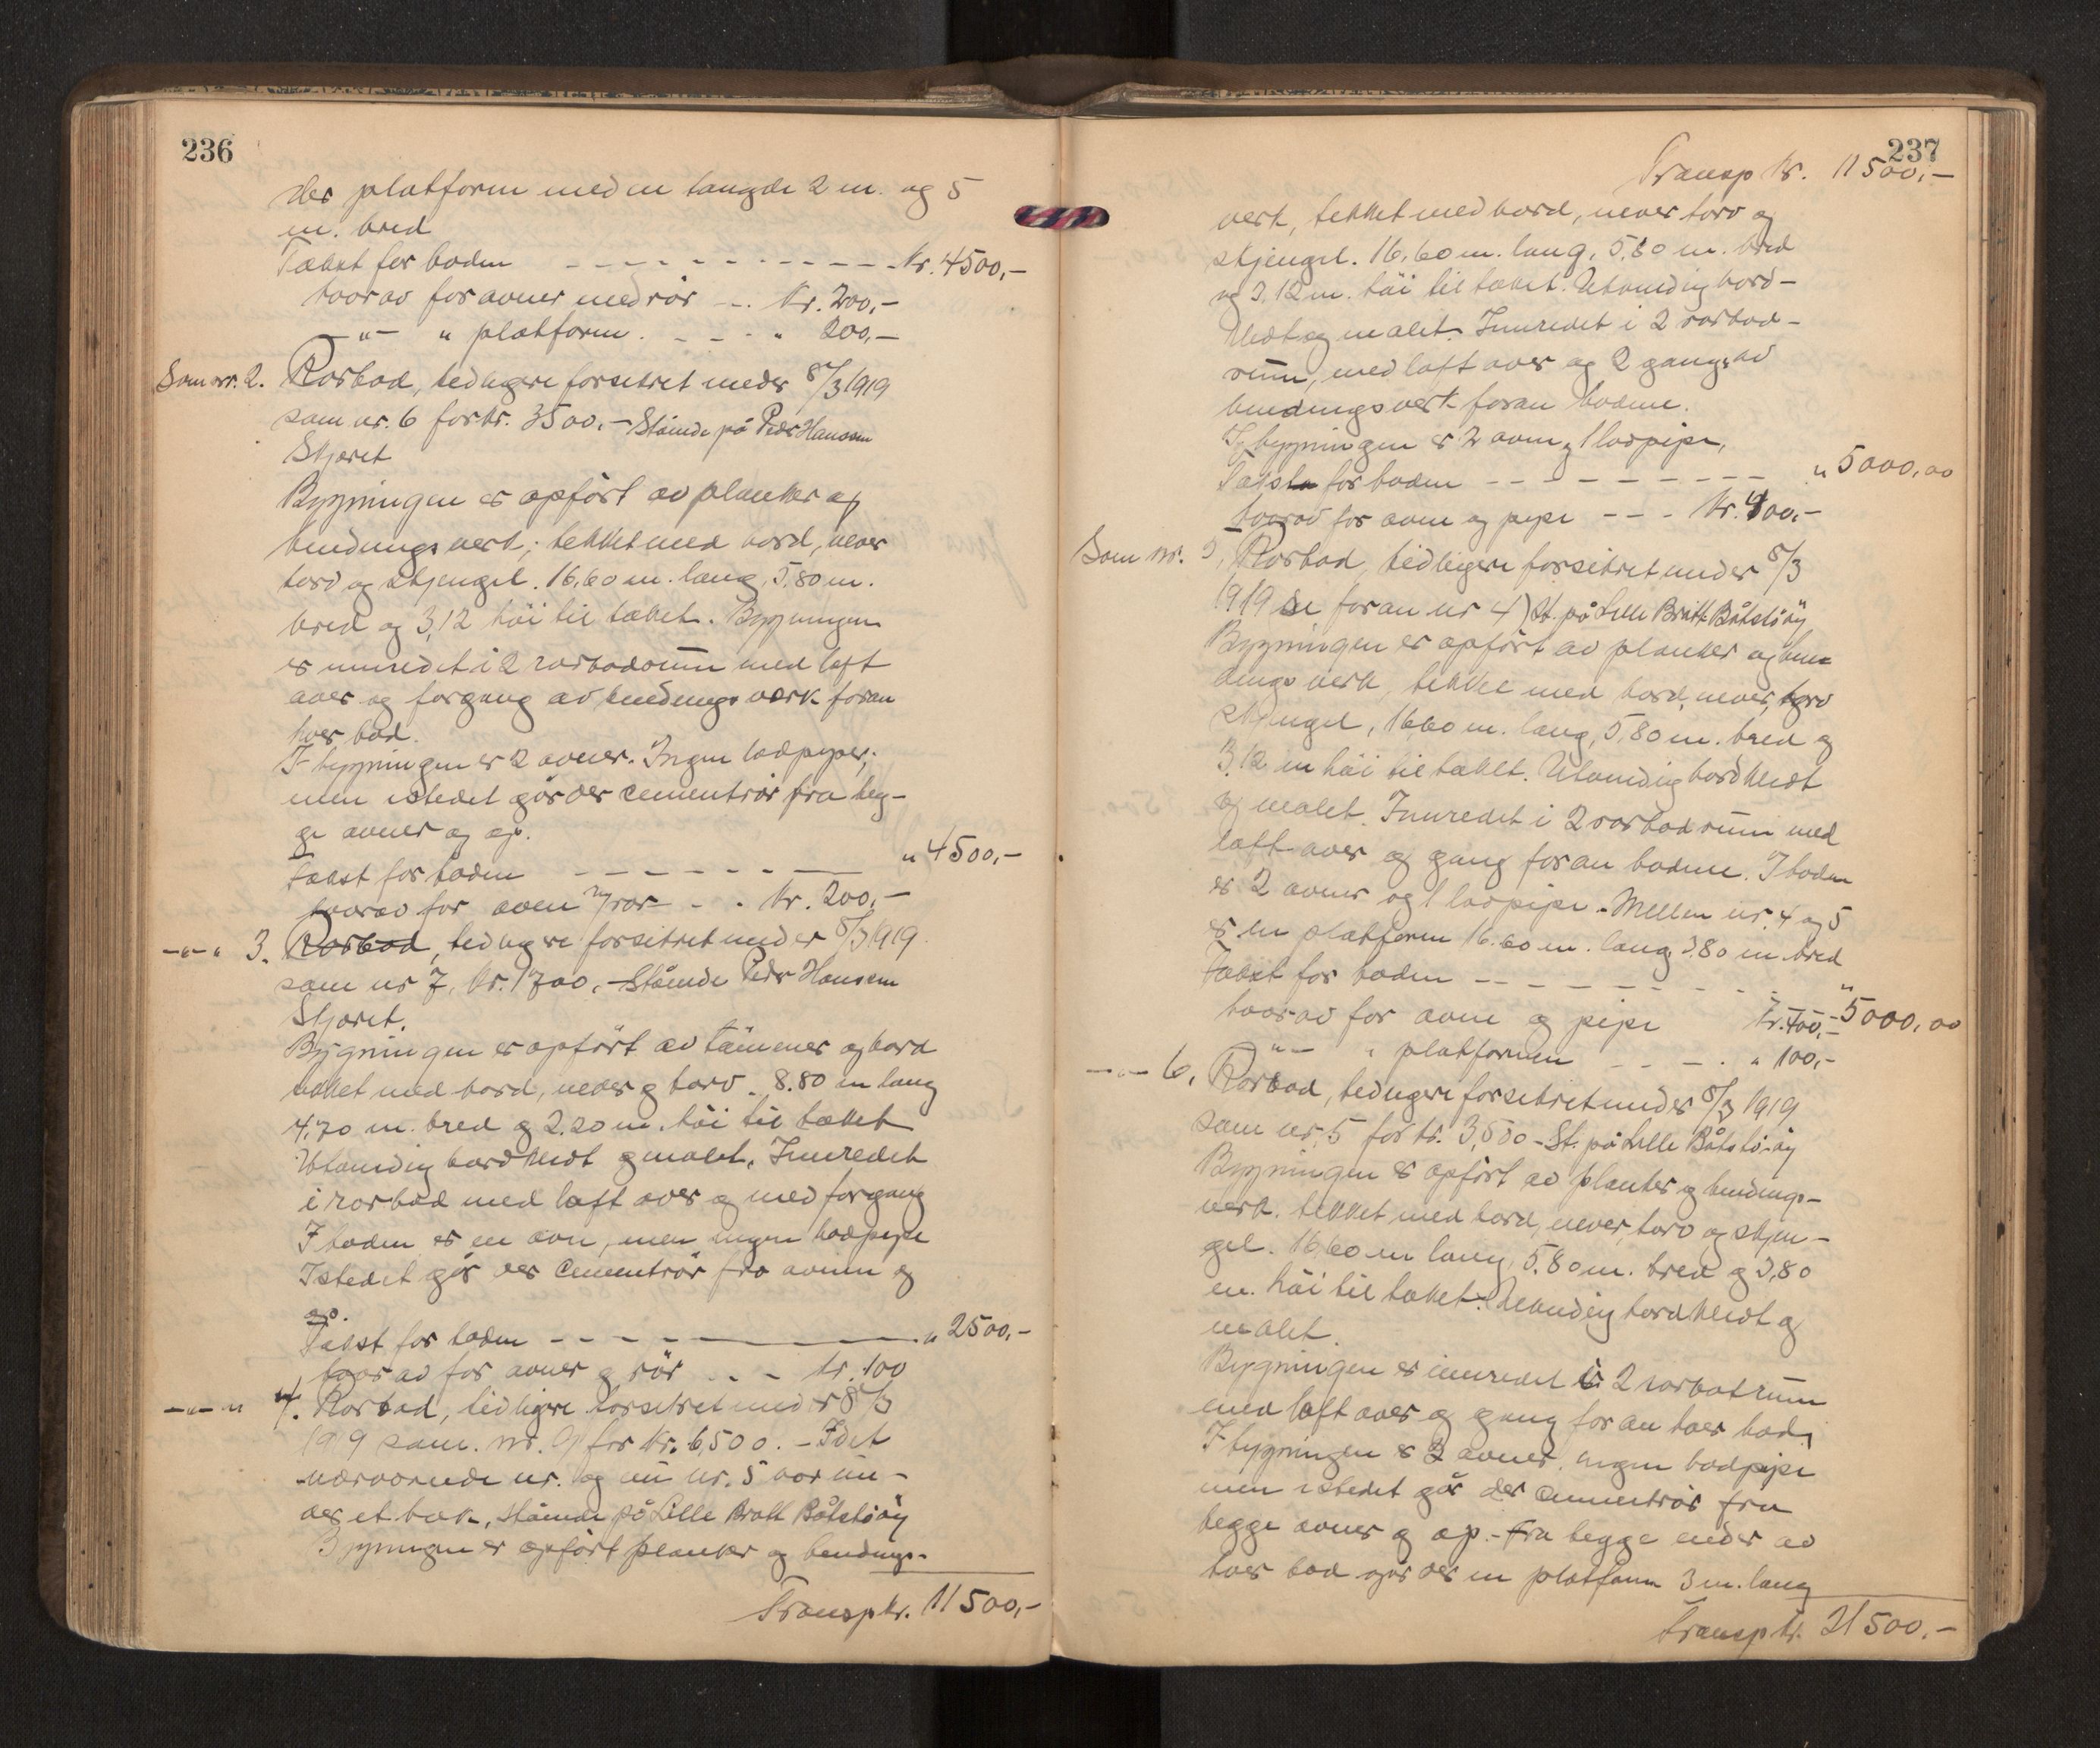 236
der platform med en længde 2 m. og 5
m. bred
Takst for boden - - - - - - - - - - - kr. 4500,-
hvorav for avner med rör - . kr. 200,-
-"- " platform. - - - " 200,-
Som nr. 2. Rorbod, tidligere forsikret under 8/3 1919
som nr. 6 for kr. 3500.- Stående på Peder Hansen
Skjæret
Bygningen er opfört av planker og
bindingsverk, tekket med bord, never
torv og skjengel. 16,60 m. lang, 5,80 m.
bred og 3,12 höi til taket. Bygningen
er innredet i 2 rorbodrum med loft
over og forgang av bindingsverk foran
hver bod.
I bygningen er 2 avner. Ingen lodpiper,
men istedet går der cementrör fra beg-
ge avner og op.
Takst for boden - - - - - - - " 4500,-
hvorav for aven og rör - - . kr. 200,-
-"- " 3. Rorbod, tidligere forsikret under 8/3 1919
som nr 7, kr. 1700,- Stående Peder Hansen
Skjæret.
Bygningen er opfört av tömmer og bord
tekket med bord, never og torv. 8.80 m lang
4,70 m. bred og 2.20 m. höi til taket
Utvendig bordklædt og malet. Innredet
i rorbod med loft over og med forgang
I boden er en ovn, men ingen lodpipe
Istedet går der cementrör fra avnen og
op.
Takst for boden - - - - " 2500,-
hvorav for avner og rör . . - kr. 100
-"- " 4. Rorbod, tidligere forsikret under 8/3
1919 som. nr. 9 for kr. 6,500. - Idet
nærværende nr. og nu nr. 5 var un-
der et tak, stående på Lille Bratt Båtstööy
Bygningen er opfört planker og bindings-
Transp kr. 11500,-
237
Transp kr. 11500,-
verk, tekket med bord, never torv og
skjengel. 16,60 m. lang, 5,80 m. bred
og 3,12 m. höi til taket. Utvendig bord-
klædt og malet. Innredet i 2 rorbod-
rum, med loft over og 2 gange av
bindingsverk foran bodene.
I bygningen er 2 avner, 1 lodpipe,
Takst for boden - - - - - - - - - " 5000,00
hvorav for avne og pipe - - - kr. 400,-
Som nr. 5, Rorbod, tidligere forsikret under 8/3
1919 se foran nr 4) St. på Lille Bratt Båtstööy
Bygningen er opfört av planker og bin
dings verk, tekket med bord, never, torv
skjengel, 16 60 m. lang, 5,80 m. bred og
3,12 m höi til taket. Utvendig bordklædt
og malet. Innredet i 2 rorbodrum med
loft over og gang foran bodene. I boden
er 2 avner og 1 lodpipe. Mellem nr. 4 og 5
er en platform 16.60 m. lang, 3.80 m bred
Takst for boden - - - - - - - - - " 5000,00
hvorav for avne og pipe kr. 400,-
-"- " platformen - - - . " 100,-
-"- 6, Rorbod, tidligere forsikret under 8/3 1919
som nr. 5 for kr. 3,500 - St. på Lille Båtstööy
Bygningen er opfört av planker og bindings-
verk. tekket med bord, never, torv og skjen-
gel. 16,60 m lang, 5.80 m. bred og 3,80
m. höi til taket. Utvendig bordklædt og
malet.
Bygningen er innredet i 2 rorbotrum
med loft over og gang foran hver bod,
I bygningen er 2 avner, ingen lodpipe
men istedet går der cementrör fra
begge avner og op. - Fra begge ender av
hver bod går der en platform 3 m. lang
Transp kr. 21500.-